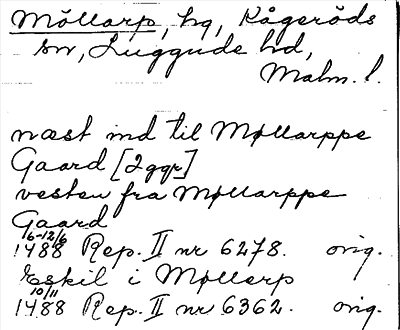 Möllarp, hg, Kågeröds
sn, Luggude hd,
Malm. l.
næst ind til Møllarppe
Gaard [2 ggr]
vesten fra Møllarppe
Gaard
6-12/6
1488 Rep. II nr 6278. orig.
Eskil i Møllerp
10/11
1488 Rep. II nr 6362. orig.